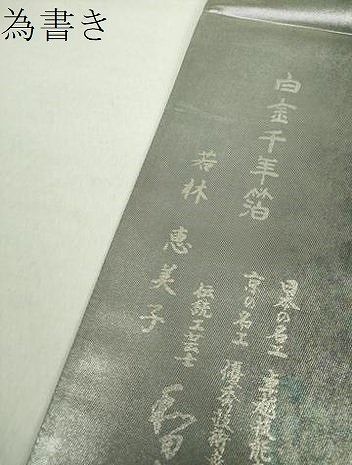 為書き
白金千年箔
若林 恵美子
日本の名工 京都技能
京の名工 優秀技術
伝統工芸士 和田